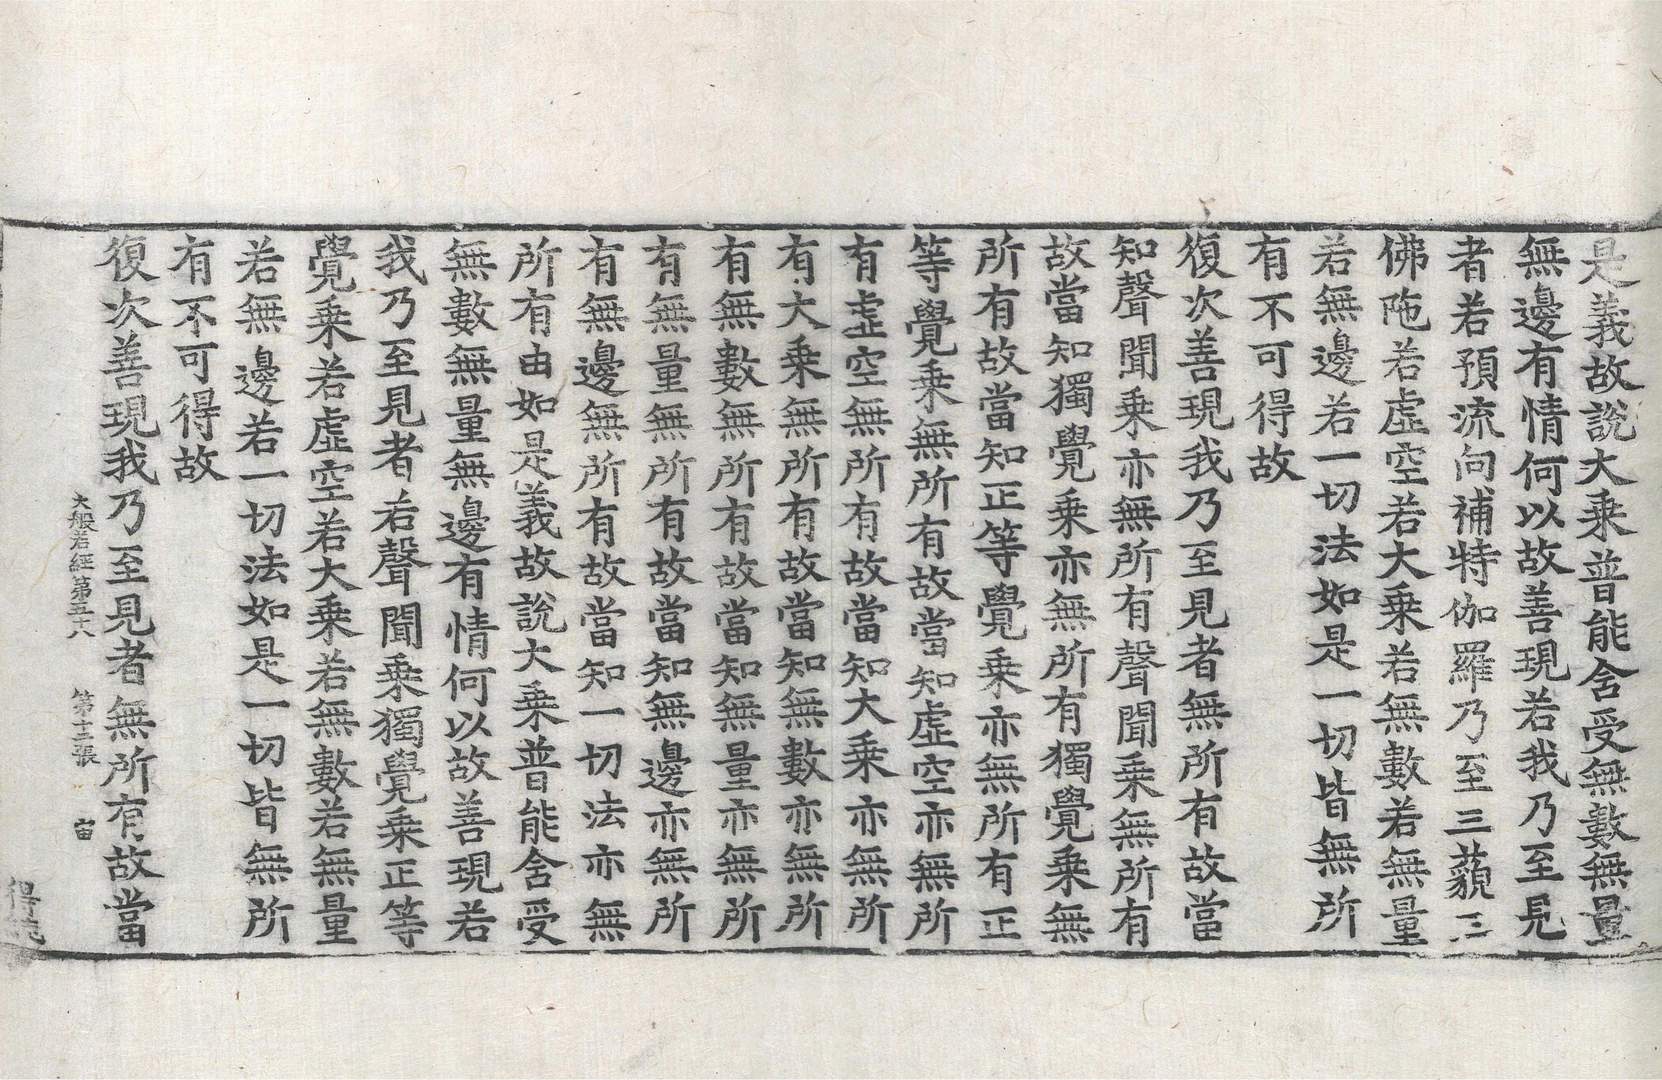 是義故說大乘普能含受無數無量
無邊有情何以故善現若我乃至見
者若預流向補特伽羅乃至三藐三
佛陁若虛空若大乘若無數若無量
若無邊若一切法如是一切皆無所
有不可得故
復次善現我乃至見者無所有故當
知聲聞乘亦無所有聲聞乘無所有
故當知獨覺乘亦無所有獨覺乘無
所有故當知正等覺乘亦無所有正
等覺乘無所有故當知虛空亦無所
有虛空無所有故當知大乘亦無所
有大乘無所有故當知無數亦無所
有無數無所有故當知無量亦無所
有無量無所有故當知無邊亦無所
有無邊無所有故當知一切法亦無
所有由如是義故說大乘普能含受
無數無量無邊有情何以故善現若
我乃至見者若聲聞乘獨覺乘正等
覺乘若虛空若大乘若無數若無量
若無邊若一切法如是一切皆無所
有不可得故
復次善現我乃至見者無所有故當
大般若經第五十八 第十三張 宙